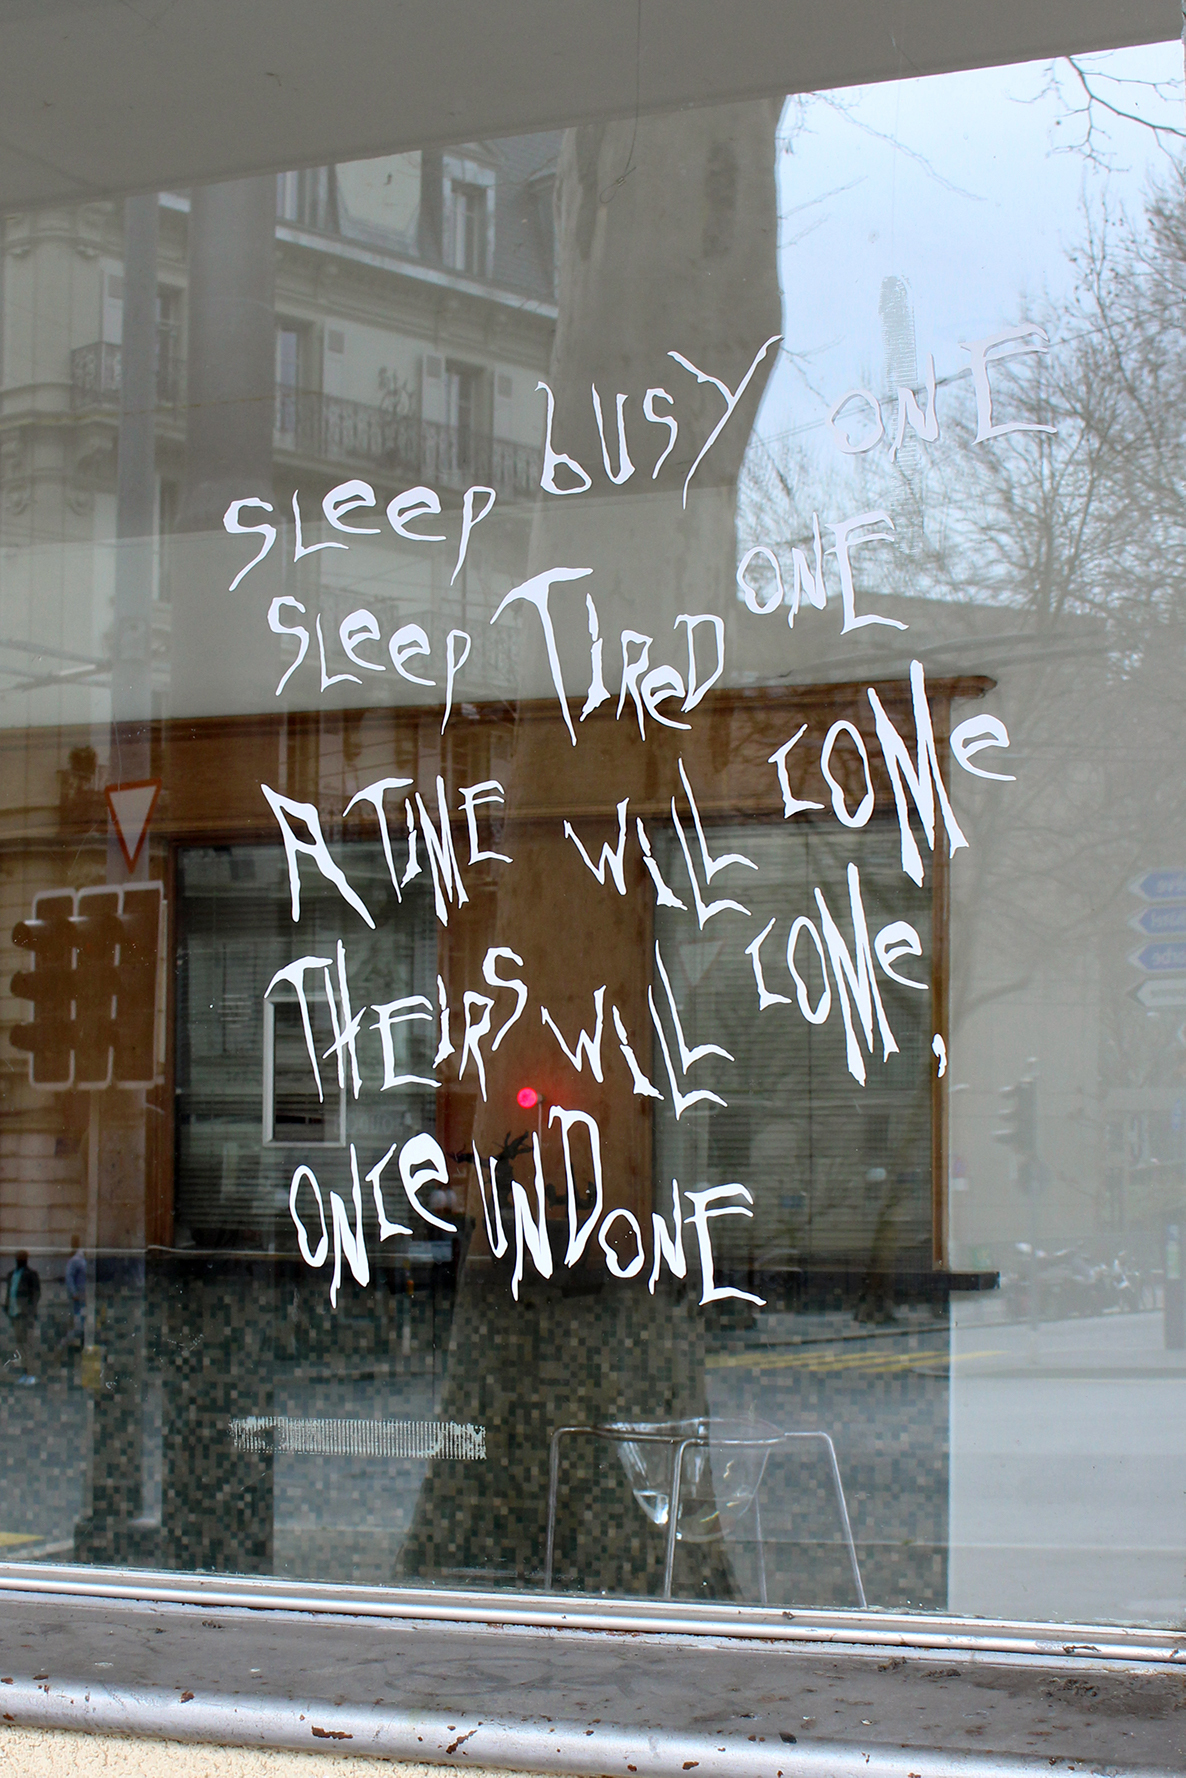 SLeep busy ONE
SLeep TIReD ONE
A TIME WiLL COMe
THEIRS WiLL COMe,
ONCe UNDONE